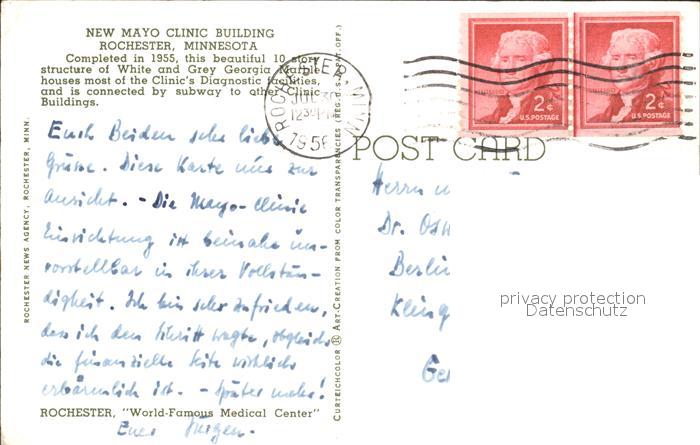 NEW MAYO CLINIC BUILDING
ROCHESTER, MINNESOTA
Completed in 1955, this beautiful 10 story
structure of White and Grey Georgia Marble
houses most of the Clinic's Diagnostic facilities,
and is connected by subway to other Clinic
Buildings.
Euch Beiden sehr liebe
Grüsse. Diese Karte nur zur
Ansicht. - Die Mayo-Clinic
Einrichtung ist beinahe un-
vorstellbar in ihrer Vollstän-
digkeit. Ich bin sehr zufrieden,
dass ich den Schritt wagte, obgleich
die finanzielle Seite wirklich
erbärmlich ist. - Später mehr!
ROCHESTER, "World-Famous Medical Center"
Euer Jürgen.
ROCHESTER NEWS AGENCY, ROCHESTER, MINN.
CURTEICHCOLOR ® ART-CREATION FROM COLOR TRANSPARENCIES (REG. U.S.A. PAT. OFF.)
ROCHESTER MINN.
JUL 30
1956
2¢
U.S. POSTAGE
2¢
U.S. POSTAGE
POST CARD
Herrn u
Dr. Osw
Berlin
Kling
Ger
privacy protection
Datenschutz